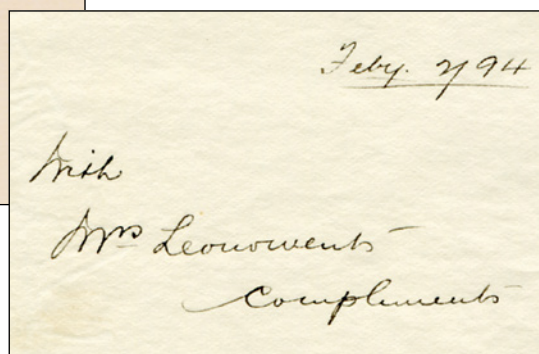 Feby. 2/94
With
Mrs Leonowens
Compliments